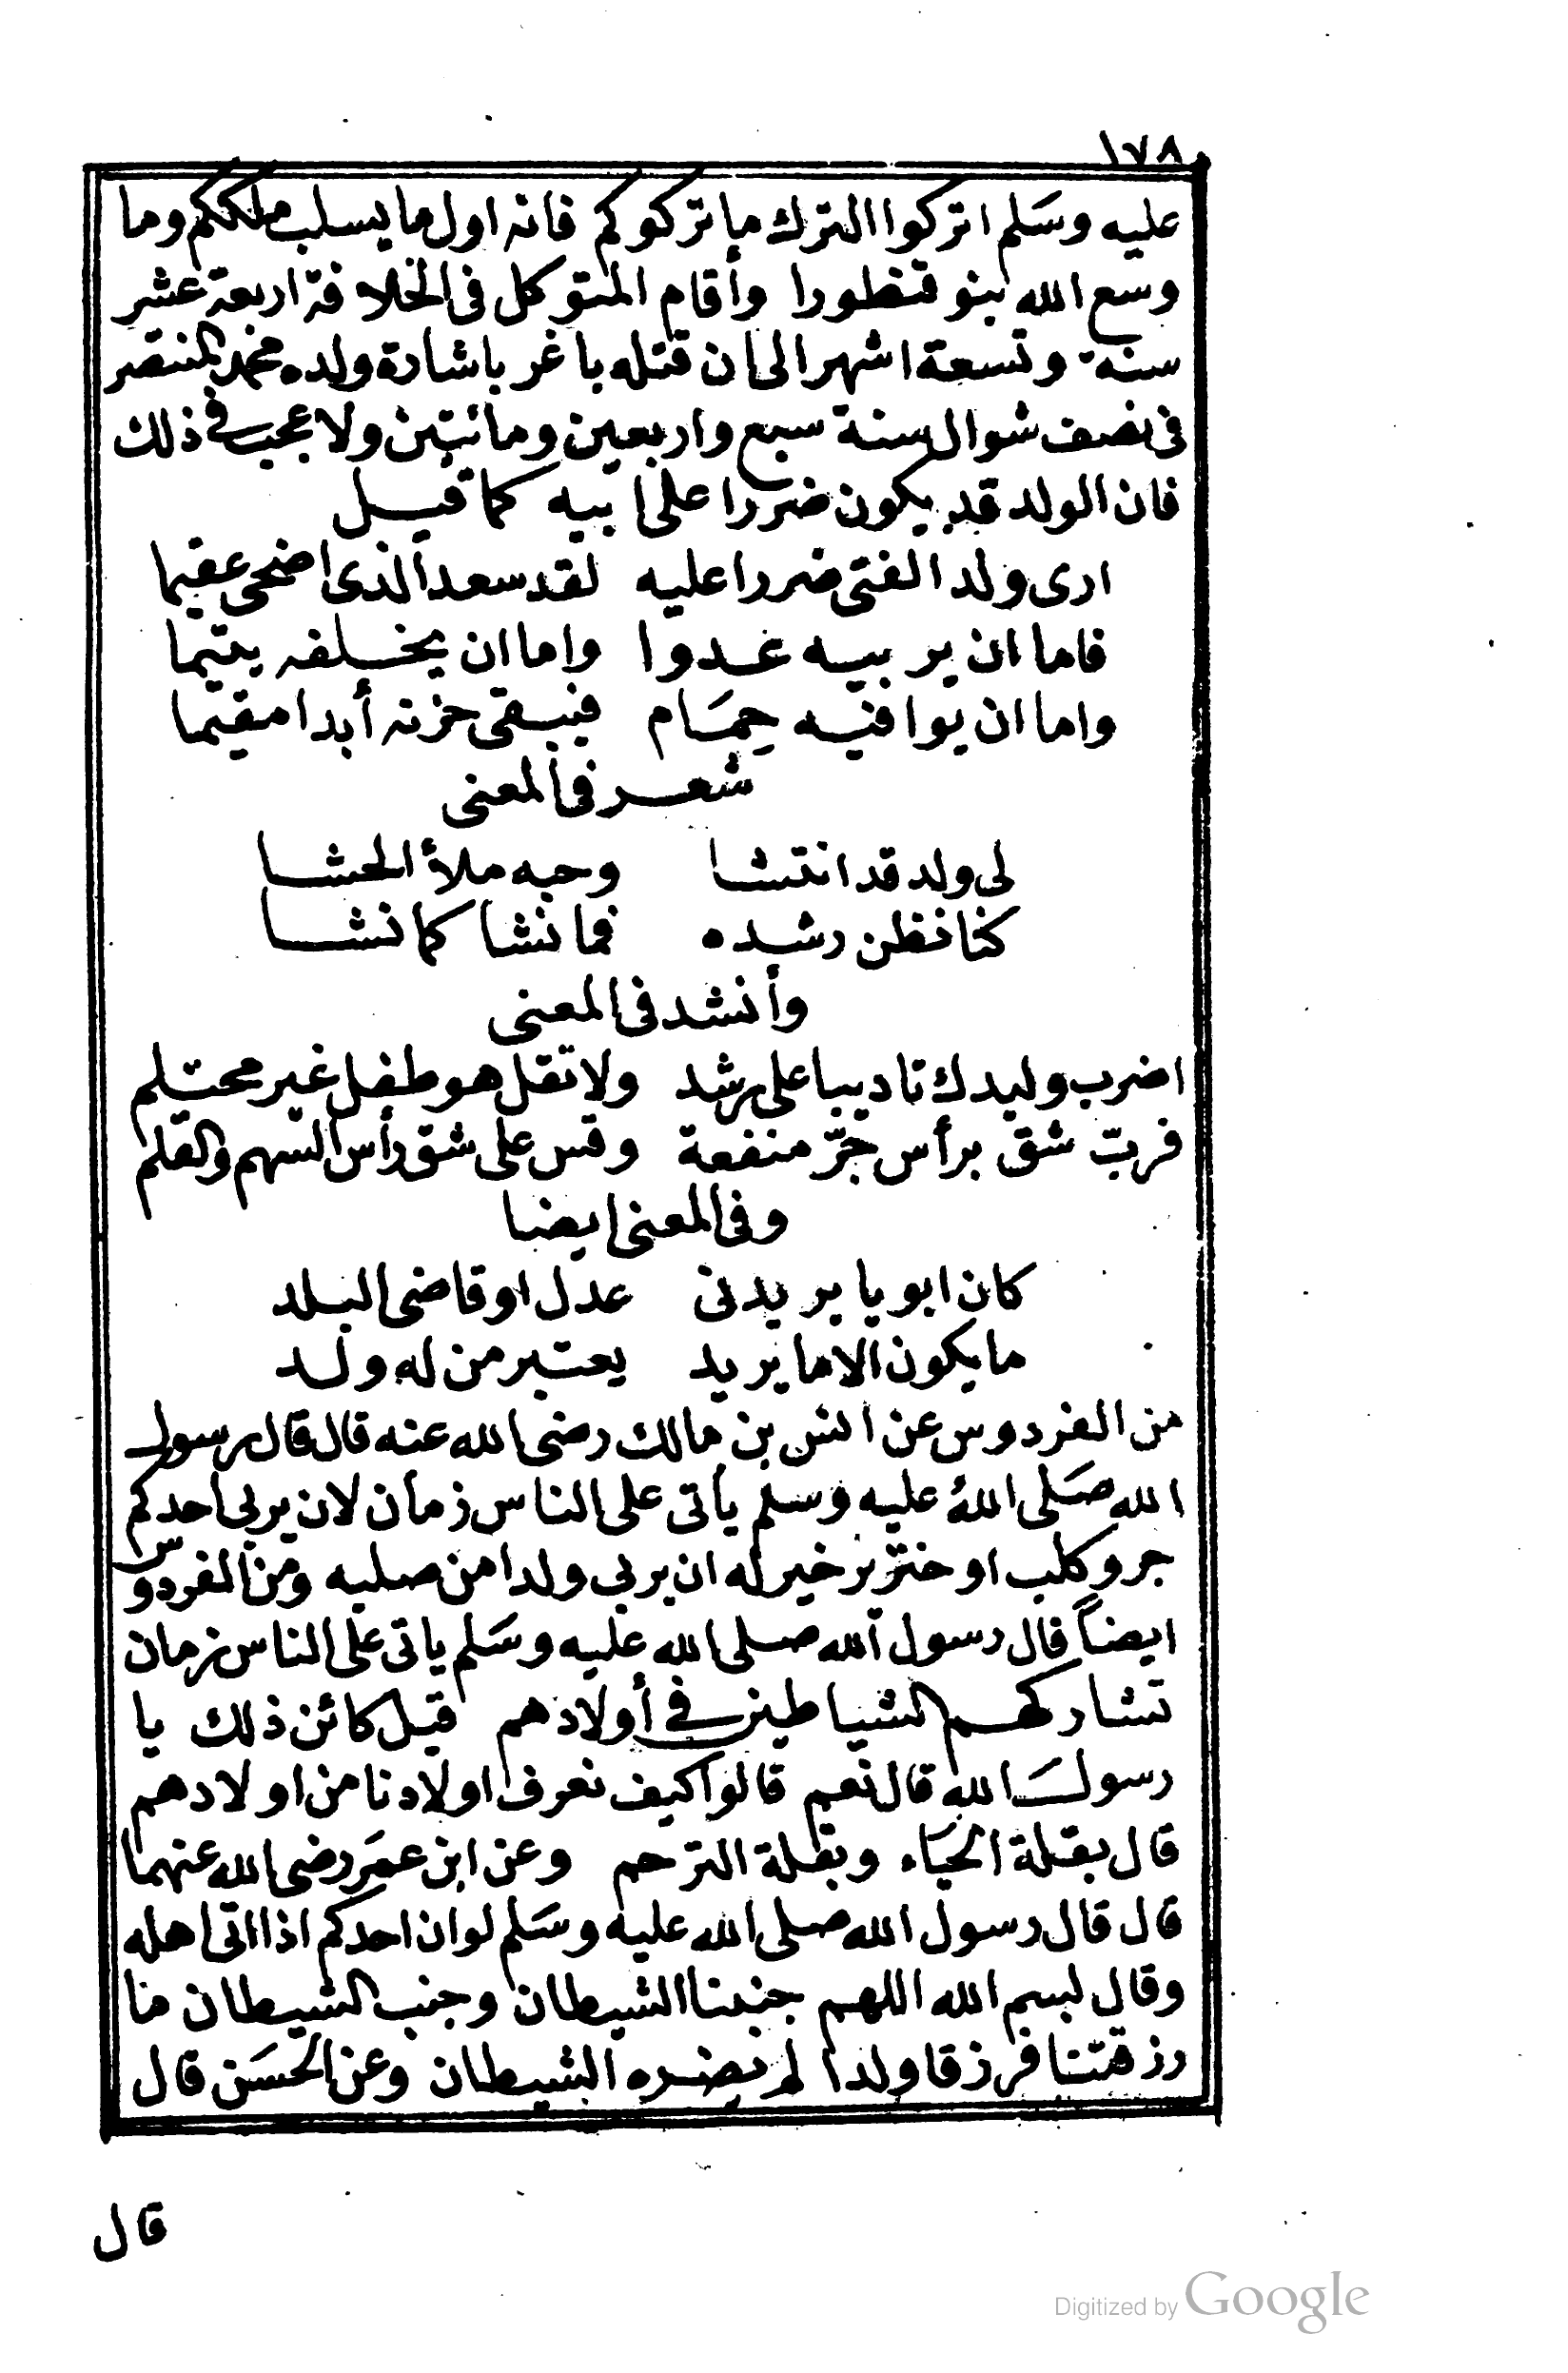 ١٧٨
عليه وسَلم اتركوا الترك ما تركوكم فانه اول ما يسلب ملككم وما
وسع الله بنو قنظورا وأقام المتوكل فى الخلافة اربعة عشر
سنة وتسعة اشهر الى ان قتله باغر باشارة ولده محمد المنتصر
فى نصف شوال سنة سبع واربعين ومائتين ولا عجب فى ذلك
فان الولد قد يكون ضررا على ابيه كما قيل
ارى ولد الفتى ضررا عليه لقد سعد الذى اضحى عقيما
فاما ان يربيه عدوا واما ان يخلفه يتيما
واما ان يوافيه حِمَام فيبقى حزنه أبدا مقيما
شعر فى المعنى
لى ولد قد انتشا وحبه ملأ الحشا
كنا نظن رشده فما نشا كما نشا
وأنشد فى المعنى
اضرب وليدك تاديبا على رشد ولا تقل هو طفل غير محتلم
فربّ شق برأس جرّ منفعة وقس على شق رأس السهم والقلم
وفى المعنى ايضا
كان ابويا يريدنى عدل او قاضى البلد
ما يكون الا ما يريد يعتبر من له ولد
من الفردوس عن انس بن مالك رضى الله عنه قال قال رسول
الله صَلى اللهُ عليه وسلم يأتى على الناس زمان لان يربى احدكم
جرو كلب او خنزير خير له ان يربى ولدا من صلبه ومن الفردوس
ايضاً قال رسول الله صلى الله عليه وسَلم ياتى على الناس زمان
تشاركهم الشياطين فى أولادهم قيل كائن ذلك يا
رسولَ اللهِ قال نعم قالوا كيف نعرف اولادنا من اولادهم
قال بقلة الحيَاء وبقلة الترحم وعن ابن عمَر رضى الله عنهما
قال قال رسول الله صلى الله عليه وسَلم لو ان احدكم اذا اتى اهله
وقال لبسم الله اللهم جنبنا الشيطان وجنب الشيطان ما
رزقتنا فرزقا ولدا لم يضره الشيطان وعن الحسَن قال
قال
Digitized by Google